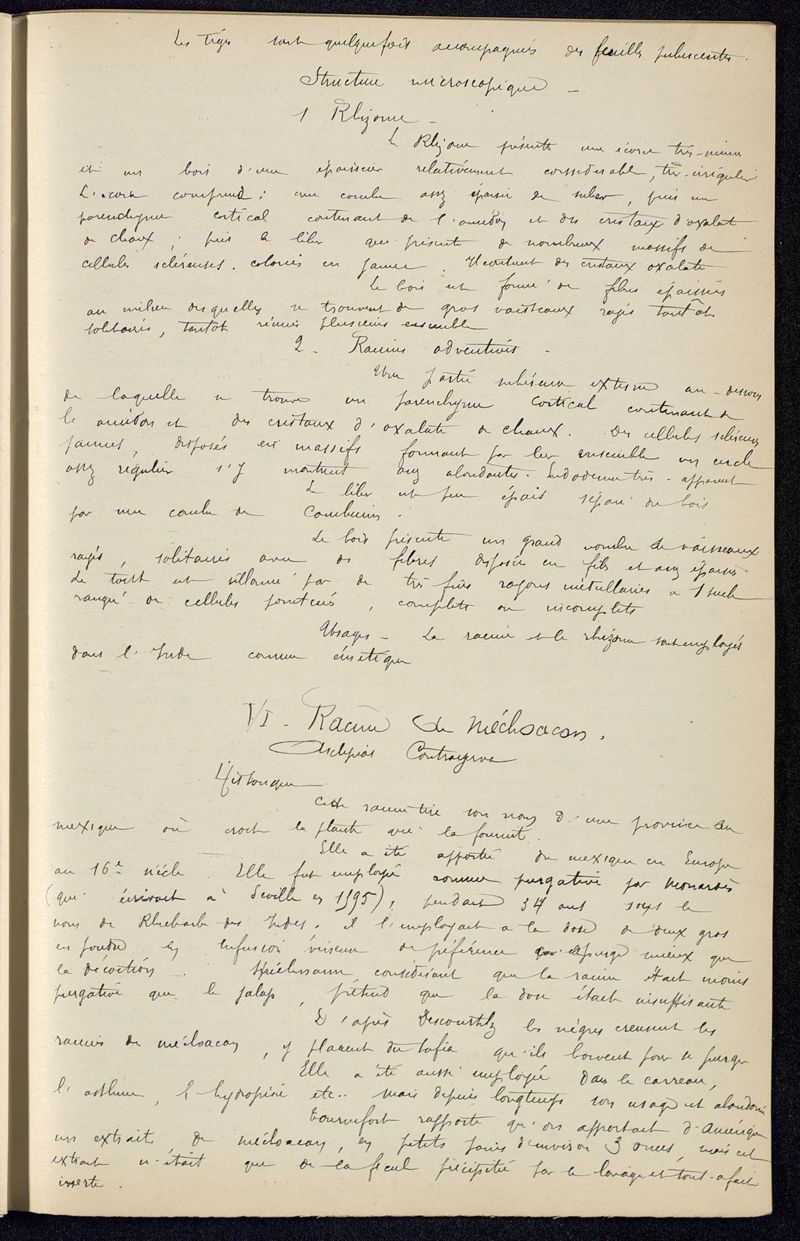 Les tiges sont quelquefois accompagnés des feuilles pubescentes.
Structure microscopique -
1 Rhizome -
Le Rhizome présente une écorce très-mince
et un bois d'une épaisseur relativement considérable, très-irrégulier
L'écorce comprend : une couche assez épaisse de suber, puis un
parenchyme cortical contenant de l'amidon et des cristaux d'oxalate
de chaux ; puis le liber qui présente de nombreux massifs de
cellules scléreuses colorés en jaune. Il contient des cristaux oxalate
Le bois est formé de fibres épaissies
au milieu desquelles se trouvent de gros vaisseaux rayés tantôt
solitaires, tantôt réunis plusieurs ensemble
2 - Racines adventives -
Une partie subéreuse externe au-dessous
de laquelle se trouve un parenchyme cortical contenant de
le amidon et des cristaux d'oxalate de chaux. Des cellules scléreuses
jaunes, disposés en massifs formant par leur ensemble un cercle
assez régulier s'y montrent assez abondantes. Endoderme très-apparent
Le liber est peu épais séparé du bois
par une couche de cambium.
Le bois présente un grand nombre de vaisseaux
rayés, solitaires avec des fibres disposés en fils et assez épaisses
Le tout est sillonné par de très fins rayons médullaires à 1 seule
rangée de cellules ponctués, complets ou incomplets
Usages - La racine et le rhizome sont employés
dans l'Inde comme émétique
VI - Racine de Méchoacan.
Asclepias Contrayerva
Historique
Cette racine tire son nom d'une province du
mexique où croit la plante qui la fournit.
Elle a été apporté du mexique en Europe
au 16e siècle. Elle fut employé comme purgative par Monardès
(qui écrivait à Séville en 1595), pendant 34 ans sous le
nom de Rhubarbe des Indes. il l'employait à la dose de deux gros
en poudre en infusion vineuse de préférence qui purge mieux que
la décoction. Spielmann, considérant que la racine était moins
purgative que le jalap, prétend que la dose était insuffisante
D'après Descourtilz les nègres creusent les
racines de méchoacan, y placent du tafia qu'ils boivent pour se purger
Elle a été aussi employée dans le carreau,
l'asthme, l'hydropisie etc.. mais depuis longtemps son usage est abandonné
Tournefort rapporte qu'on apportait d'Amérique
un extrait de méchoacan, en petits pains d'environ 3 onces, mais cet
extrait n'était que de la fécule précipitée par le lavage et tout-à-fait
inerte.